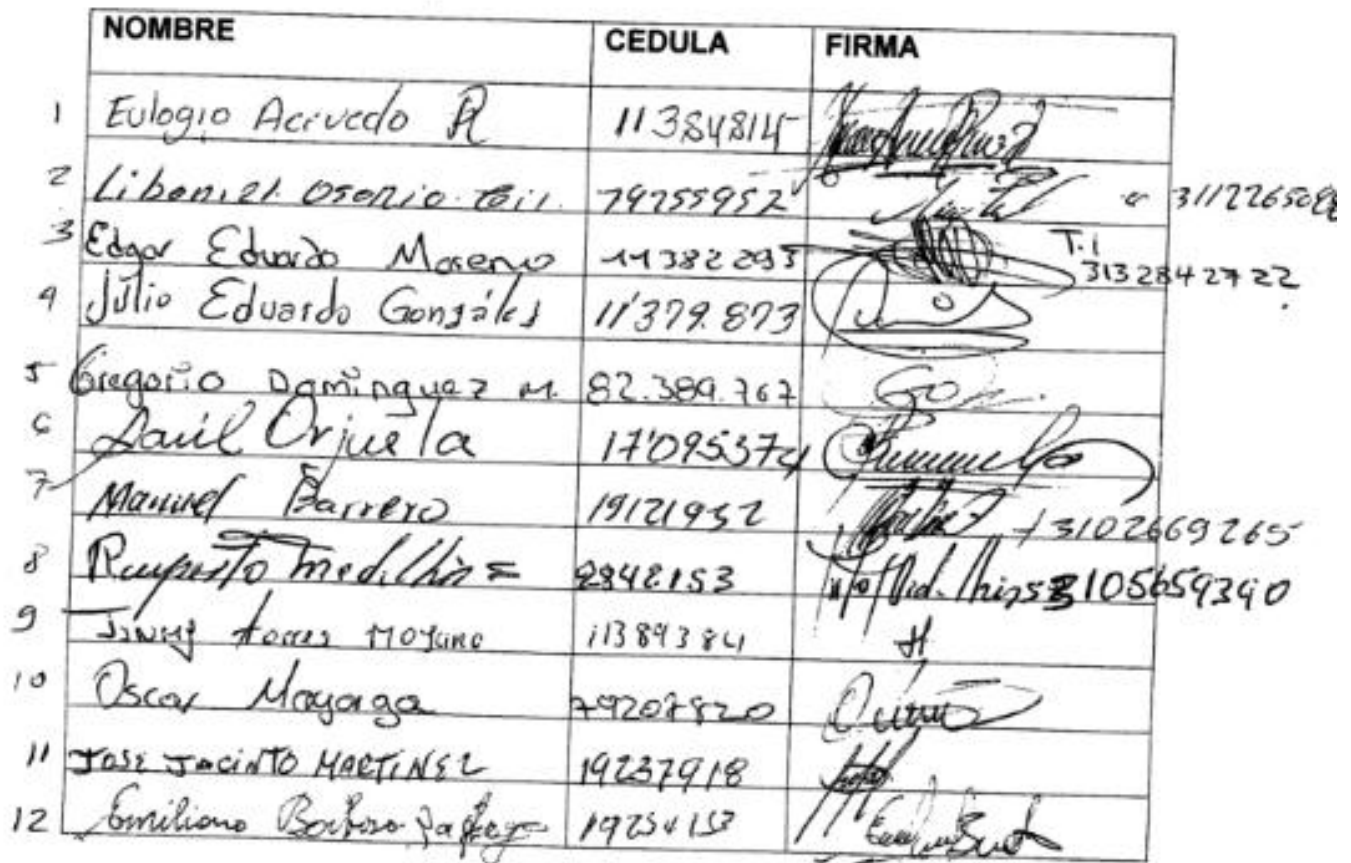 NOMBRE CEDULA FIRMA
1 Eulogio Acevedo R 11384814
2 Osorio 79255952 3112265088
3 Edgar Eduardo Moreno 11382293 T.I
3132842722
4 Júlio Eduardo Gonzáles 11'379.873
5 Gregorio Daminguez M. 82.389.767 Go
6 Saúl Orjuela 17'095374
7 Manuel Barrero 19121932 3102669265
8 Medillin 2842153 3105659390
9 Torres Moyano 11389384 H
10 Oscar Mayorga 79207820
11 JOSE JACINTO MARTINEZ 19237918
12 Emiliano Barbosa 19254153